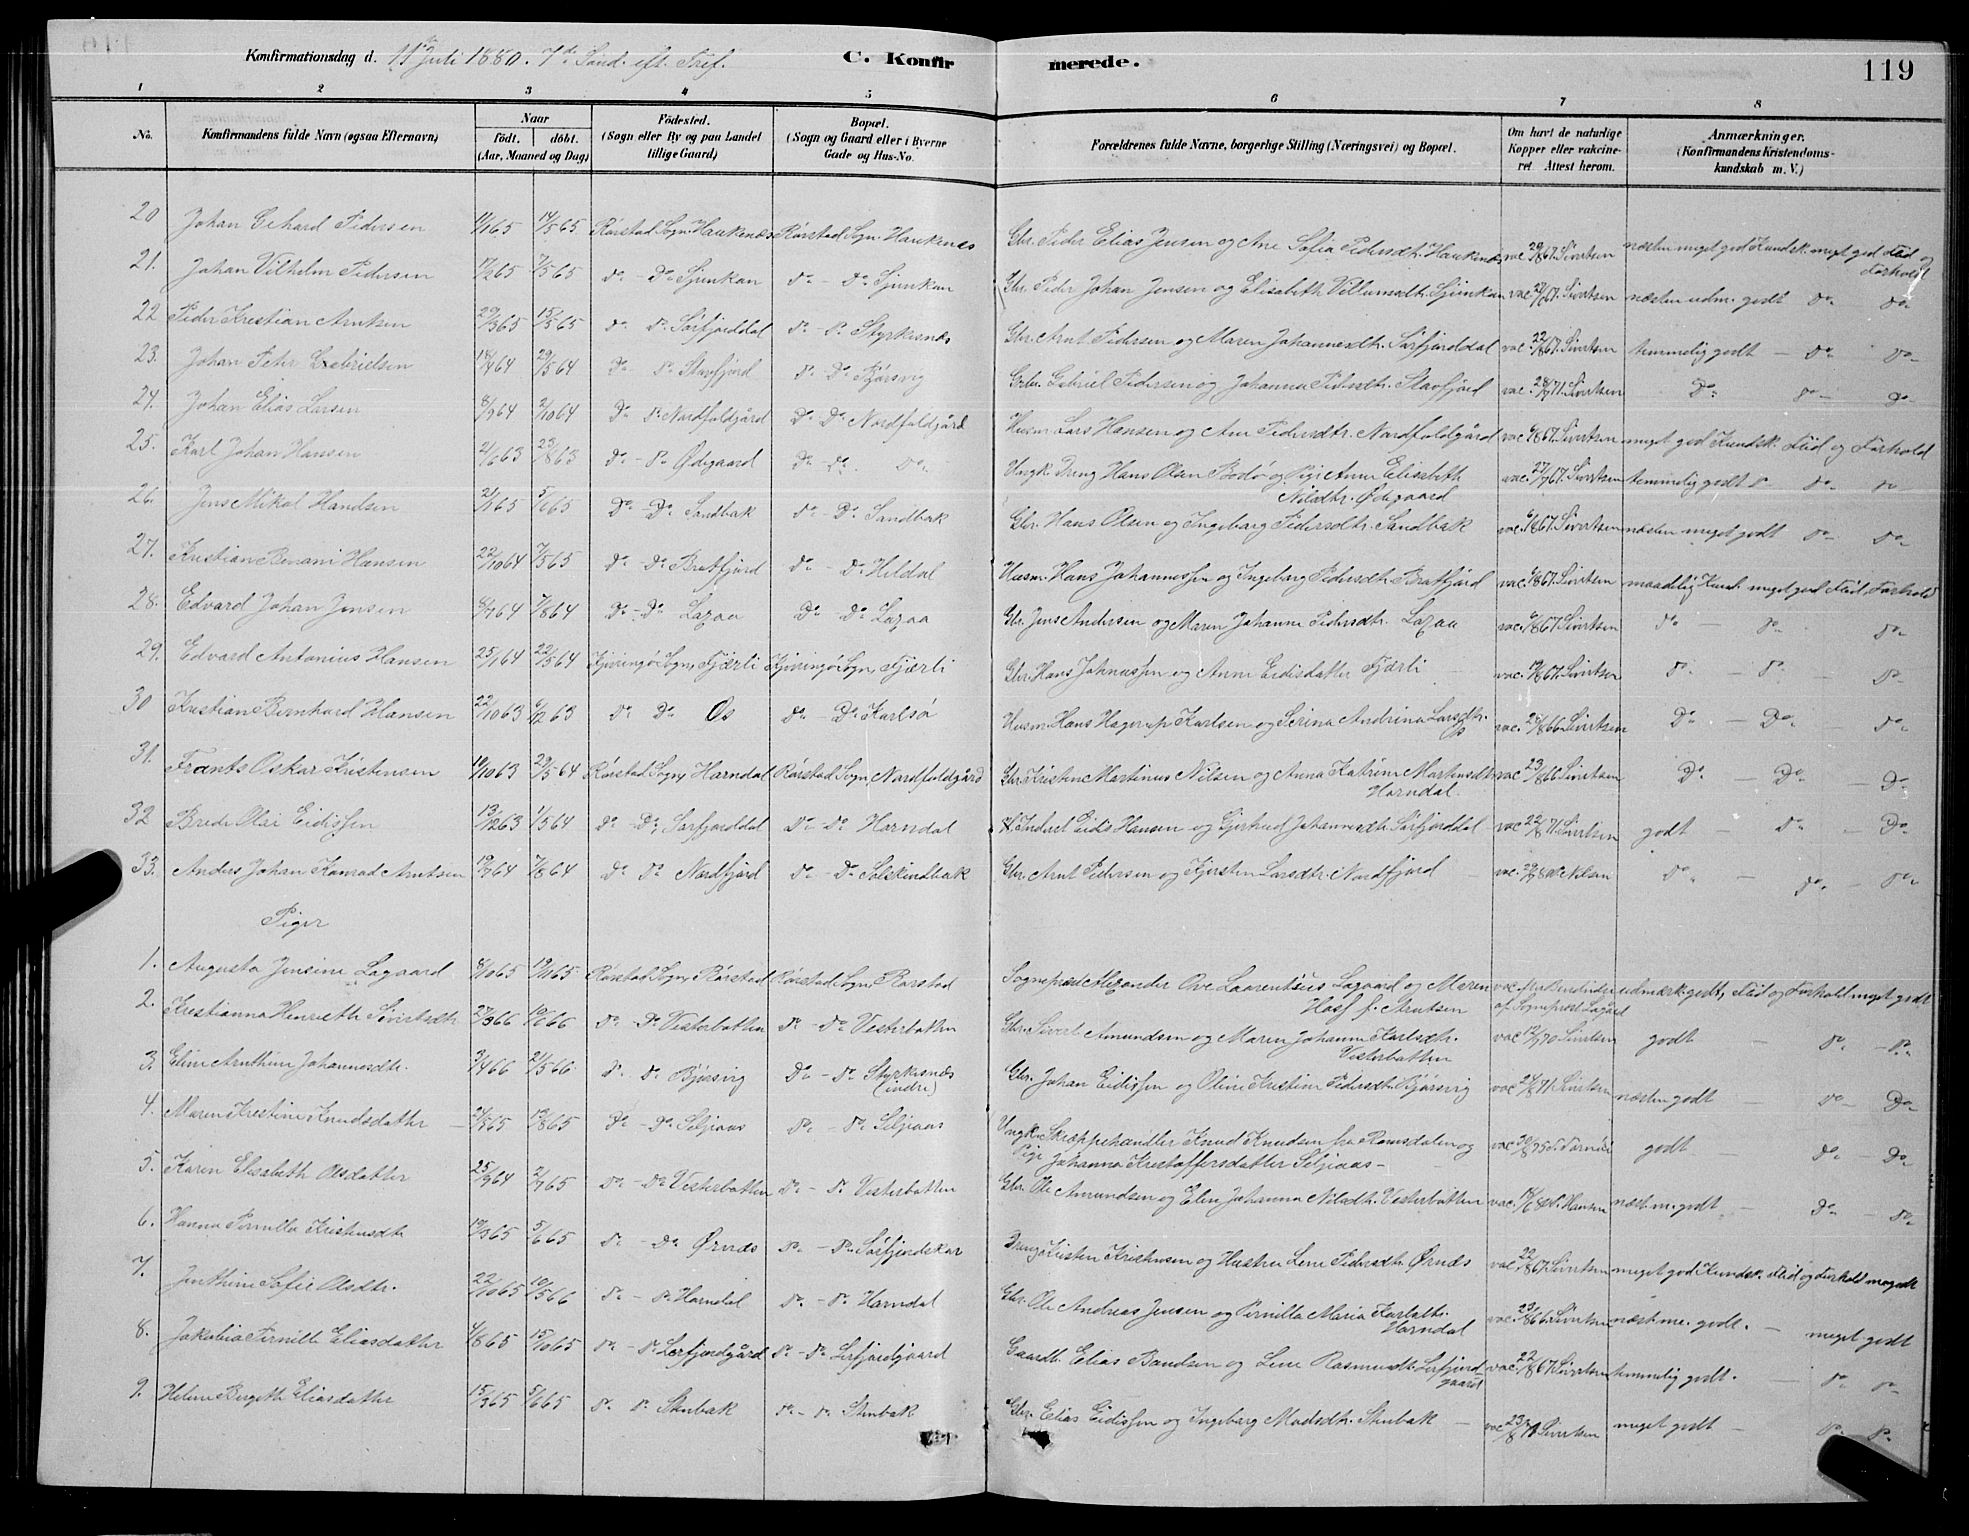 119
Konfirmationsdag d. 11te Juli 1880. 7de Sønd. eft. Tref.
C. Konfir merede.
1 2 3 4 5 6 7 8
No. Konfirmandens fulde Navn (ogsaa Efternavn) Naar födt. döbt. (Aar, Maaned og Dag) Födested. (Sogn eller By og paa Landet tillige Gaard) Bopæl. (Sogn og Gaard eller i Byerne Gade og Hus-No. Forældrenes fulde Navne, borgerlige Stilling (Næringsvei) og Bopæl. Om havt de naturlige Kopper eller vakcineret. Attest herom. Anmærkninger. (Konfirmandens Kristendomskundskab m. V.)
20 Johan Gehard Pedersen 14/5 65 Rørstad Sogn Haukenæs Rørstad Sogn Haukenæs Gbr. Peder Elias Jensen og Ane Sofia Pedersdtr. Haukenæs vac. 29/8 67. Sivertsen næsten meget god Kundsk. meget god Flid og Forhold
21. Johan Vilhelm Pedersen 17/2 65 7/5 65 do - Do Sjunkan do - Do Sjunkan Gbr. Peder Johan Jensen og Elisabeth Villumsdtr. Sjunkan vac. Sivertsen næsten udm. godt do do
22 Peder Kristian Arntsen 29/3 65 15/5 65 do do Sørfjorddal do - do Styrkesnæs Gbr. Arnt Pedersen og Maren Johannesdtr. Sørfjorddal vac. 22/8 67. Sivertsen temmelig godt - do do
23. Johan Peter Gabrielsen 29/5 64 Do - do Stavfjord do Do Bjørsvig Gbr. Gabriel Pedersen og Johanna Pedersdtr. Stavfjord vac. Sivertsen Do do - do
24. Johan Elias Larsen 8/9 64 2/10 64 Do - do Nordfoldgård Do Do Nordfoldgård Husm. Lars Hansen og Ane Pedersdtr. Nordfoldgård vac. 6/8 67. Sivertsen meget god Kundsk. Flid og Forhold
25. Karl Johan Hansen 2/6 63 23/8 63 Do - do Ødegaard Do - Do. Do - Ungk. Dreng Hans Olsen Bodø og Pige Anne Elisabeth Nilsdtr. Ødegaard vac. Sivertsen temmelig godt do do do
26. Jens Mikal Handsen 21/1 65 5/6 65 Do - Do Sandbak do - Do Sandbak Gbr. Hans Olsen og Ingeborg Pedersdtr. Sandbak vac. 6/8 67. Sivertsen næsten meget godt do do
27. Kristian Benoni Hansen 22/10 64 7/5 65 do Do Bratfjord do - Do Hildal Husm. Hans Johannessen og Ingeborg Pedersdtr. Bratfjord vac. 6/8 67. Sivertsen maadelig Kund. meget god Flid, Forhold
28. Edvard Johan Jensen 8/7 64 7/8 64 Do - Do Lagaa Do - Do Lagaa Gbr. Jens Andersen og Maren Johanne Pedersdtr. Lagaa vac. 6/8 67 Sivertsen do - do - do
29. Edvard Antonius Hansen 25/1 64 22/5 64 Kjerringø Sogn, Fjærli Kjerringø Sogn, Fjærli Gbr. Hans Johnsen og Anne Eidisdatter Fjærli vac. 19/8 67. Sivertsen do - do - do
30 Kristian Bernhard Hansen 22/10 63 6/12 63 do Do Os do - Do Karlsø Husm. Hans Hagerup Karlsen og Serina Andrina Larsdtr. Os vac. 8 66 Sivertsen Do - Do - do
31. Frants Oskar Kristensen 19/10 63 29/5 64 Rørstad Sogn, Horndal Rørstad Sogn, Nordfoldgård Gbr. Kristen Martinus Nilsen og Anna Katrine Martinsdtr. Horndal vac. 23/8 66 Sivertsen Do - Do - Do
32 Brede Olai Eidissen 13/12 63 1/5 64 do - Do, Sørfjorddal do - do Horndal Inderst Eidis Hansen og Gjertrud Johannesdtr. Sørfjorddal vac. 22/8 71. Sivertsen godt - do - Do
33. Anders Johan Konrad Arntsen 19/7 64 7/8 64 do do Nordfjord do - Do Solskindbak Gbr. Arnt Pedersen og Kjersten Larsdtr. Nordfjord - vac. Nilsen do - do - do
Piger
1. Augusta Jensine Lagaard 8/10 65 19/11 65 Rørstad Sogn, Rørstad Rørstad Sogn, Rørstad Sogneprest Alexander Ove Laurentsius Lagaard og Maren Hass f. Arntsen vac. af Sogneprest Lagård udmærk. godt, Flid og Forhold meget godt
2. Kristianna Henrieth Sivertsdtr. 27/3 66 10/6 66 do - Do Vesterbatten do - do Vesterbatten Gbr. Sivert Amundsen og Maren Johanna Karlsdtr. Vesterbatten vac. Sivertsen godt - do - do
3. Eline Arnthine Johannesdtr. 3/4 66 21/5 66 do do Bjørsvig Do - do Styrkesnæs (indre) Gbr. Johan Eidissen og Oline Kristine Pedersdtr. Bjørsvig vac. Sivertsen næsten godt - do - Do
4. Maren Kristine Knudsdatter 13/8 65 Do - Do Seljeaas do - do Seljeaas Ungk. Skræppehandler Knud Knudsen fra Romsdalen og Pige Johanna Kristoffersdatter Seljeaas - vac. godt do - Do
5. Karen Elisabeth Olsdatter 25/9 64 2/7 65 do - Do Vesterbatten do - do Vesterbatten Gbr. Ole Amundsen og Eline Johanna Nilsdtr. Vesterbatten vac. Hansen næst. m. godt - Do - do
6. Hanna Pernilla Kristensdtr 19/3 65 5/6 65 do - Do Ørnæs do - do Sørfjordskar Dreng Kristen Kristensen og Hustru Lene Pedersdtr. Ørnæs vac. 22/8 67. Sivertsen meget god Kundsk. Flid og Forhold meg. godt
7. Jenthine Sofie Olsdtr. 22/10 65 10/5 66 do - do Horndal do - do Horndal Gbr. Ole Andreas Jensen og Pernilla Maria Karlsdtr. Horndal vac. 23/8 66. Sivertsen næst me. godt. - meget godt
8. Jakobia Pernille Eliasdatter 4/8 65 15/10 65 do - do Lerfjordgård do - do Leirfjordgaard Gaardb. Elias Bendsen og Lene Rasmusdtr. Lerfjordgaard vac. 22/8 67 Sivertsen temmelig godt. - do do
9. Helene Bergeth Eliasdatter 15/3 65 5/6 65 do do Stenbak do - do Stenbak Gbr. Elias Eidissen og Ingeborg Madsdtr. Stenbak - vac. Sivertsen meget godt - do do